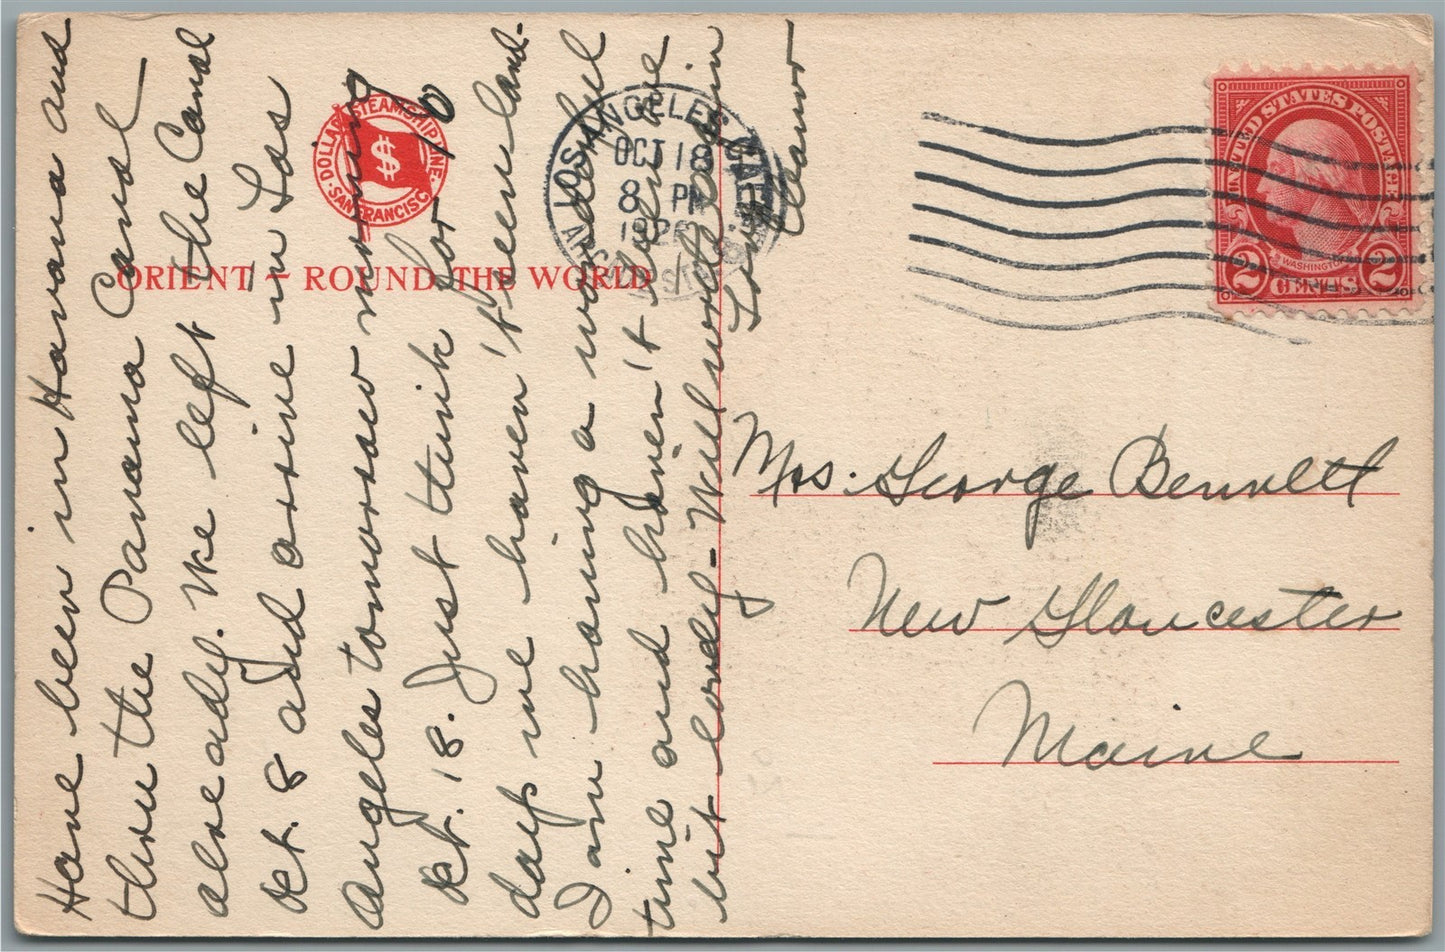 Have been in Havana and
thru the Panama Canal –
already. We left the Canal
Oct. 8 and arrive in Los
Angeles tomorrow morning
Oct. 18. Just think for 10
days we haven't seen land.
I am having a wonderful
time and haven't been
but lordy – Will write again
Love
Eleanor
DOLLAR STEAMSHIP LINE.
· SAN FRANCISCO ·
$
ORIENT – ROUND THE WORLD
LOS ANGELES, CALIF.
OCT 18
8 PM
UNITED STATES POSTAGE
WASHINGTON
2 CENTS 2
Mrs. George Bennett
New Gloucester
Maine